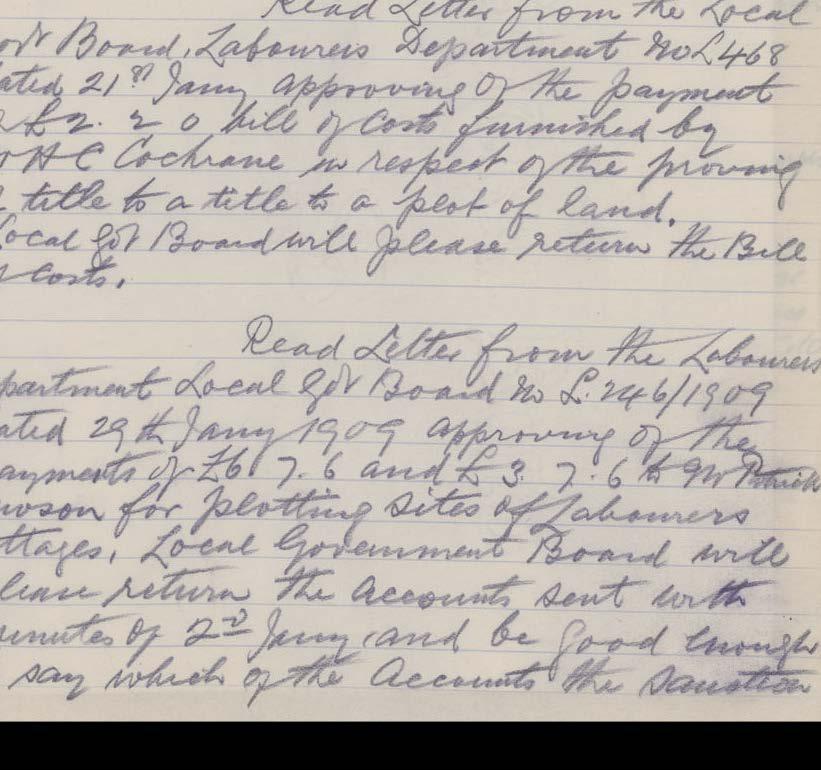 Read Letter from the Local
Board, Labourers Department No L468
ated 21st Jany approoving of the payment
£2. 2 0 bill of Costs furnished by
H C Cochrane in respect of the proving
title to a title to a plot of land.
Local Govt Board will please return the Bill
costs.
Read Letter from the Labourers
partment Local Govt Board No L. 246/1909
ated 29th Jany 1909 approving of the
ayments of £6 7. 6 and £3. 7. 6 to Mr Patrick
for plotting sites of Labourers
ttages. Local Government Board will
lease return the accounts sent with
inutes of 2nd Jany, and be good enough
say which of the Accounts the Sanction